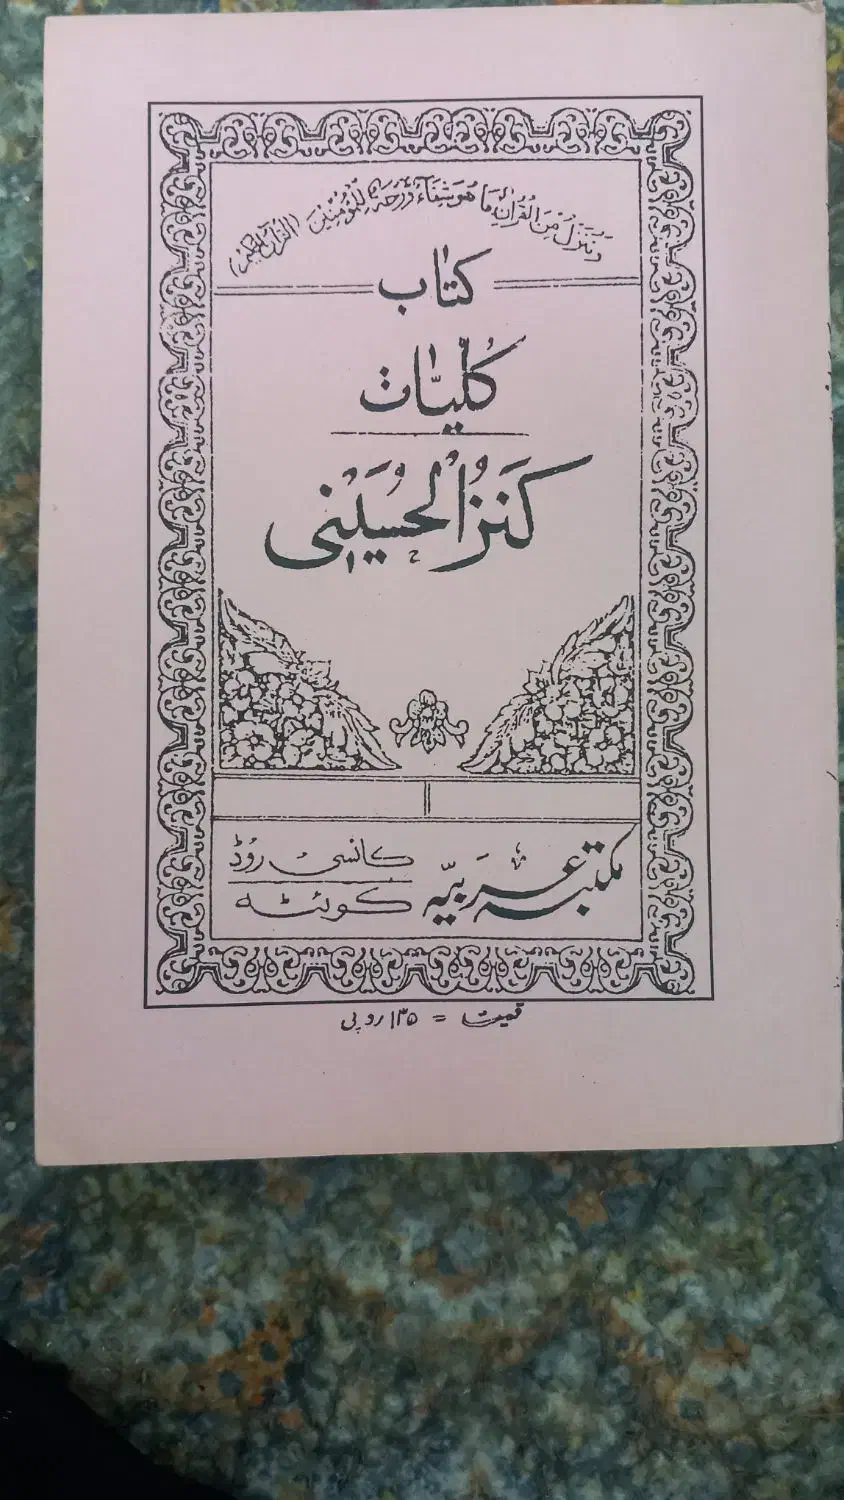 وَنُنَزِّلُ مِنَ الْقُرْاٰنِ مَا هُوَ شِفَآءٌ وَّرَحْمَةٌ لِّلْمُؤْمِنِينَ (القرآن الحکیم)
كتاب
كُلّیّات
كَنزُ الحُسَیْنِی
مکتبہ عَربیّہ
کانسی روُڈ
کوئٹہ
قیمت = ۱۳۵ روپی